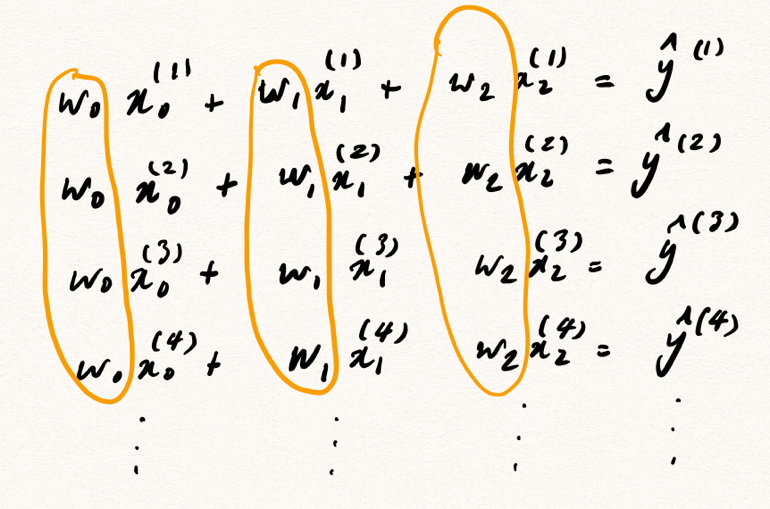 w₀ x₀⁽¹⁾ + w₁ x₁⁽¹⁾ + w₂ x₂⁽¹⁾ = ŷ⁽¹⁾
w₀ x₀⁽²⁾ + w₁ x₁⁽²⁾ + w₂ x₂⁽²⁾ = ŷ⁽²⁾
w₀ x₀⁽³⁾ + w₁ x₁⁽³⁾ w₂ x₂⁽³⁾ = ŷ⁽³⁾
w₀ x₀⁽⁴⁾ + w₁ x₁⁽⁴⁾ w₂ x₂⁽⁴⁾ = ŷ⁽⁴⁾
⋮ ⋮ ⋮ ⋮